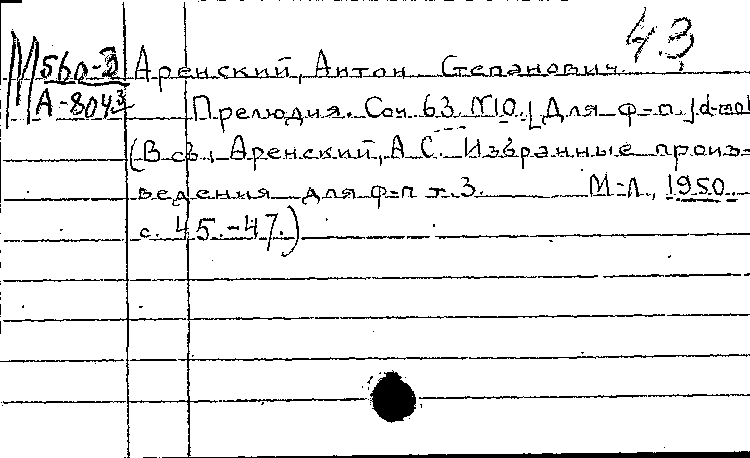 43
М 560-3 Аренский, Антон Степанович.
А-8043 Прелюдия. Соч. 63. №10. [Для ф-п.] d-mol
(В сб., Аренский, А. С. Избранные произ-
ведения для ф-п т. 3. М-Л., 1950.
с. 45.-47.)